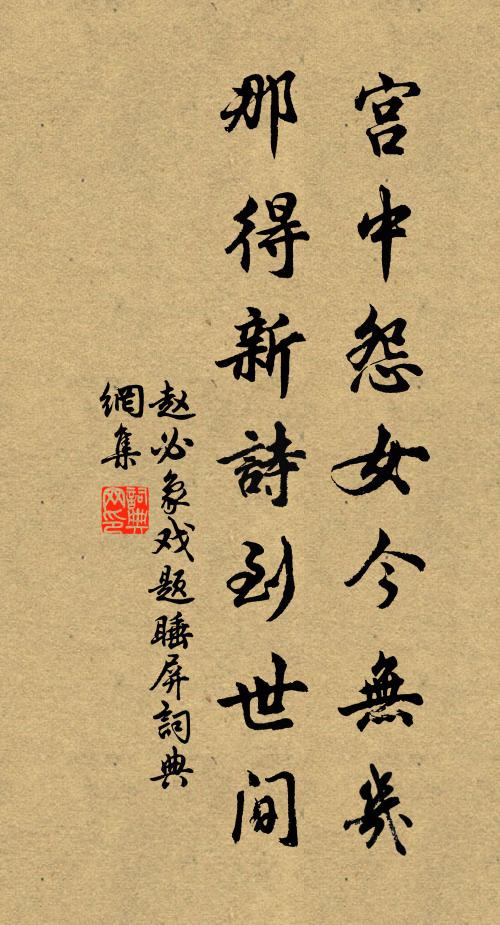 宫中怨女今無幾
那得新詩到世间
赵必象戏题睡屏詞典
網集
詞典
网印